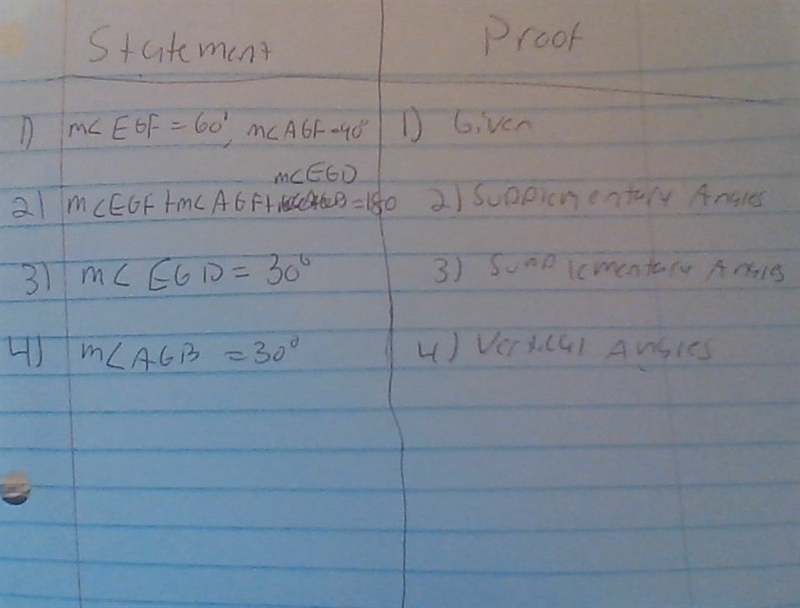 Statement Proof
1) m∠EGF = 60°, m∠AGF = 90° 1) Given
m∠EGD
2) m∠EGF + m∠AGF + = 180 2) Supplementary Angles
3) m∠EGD = 30° 3) Supplementary Angles
4) m∠AGB = 30° 4) Vertical Angles